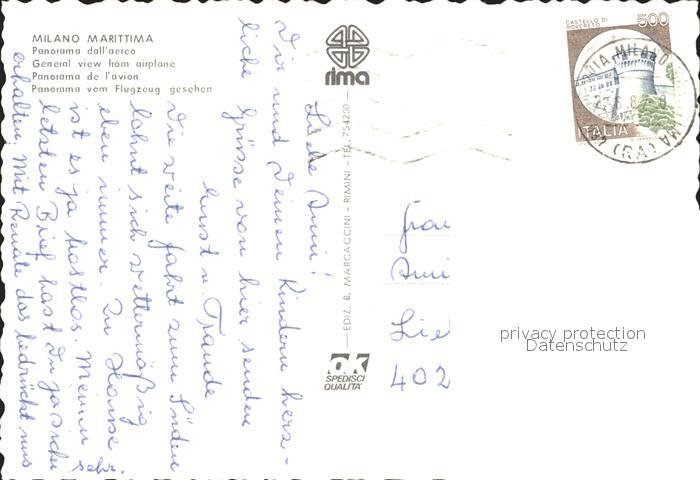 MILANO MARITTIMA
Panorama dall'aereo
General view from airplane
Panorama de l'avion
Panorama vom Flugzeug gesehen
rima
EDIZ. B. MARCACCINI - RIMINI - TEL. 754250
OK
SPEDISCI
QUALITÀ
CASTELLO DI
ROVERETO
500
ITALIA
MILANO
(RA)
Liebe Anni!
Dir und Deinen Kindern herz-
liche Grüsse von hier senden
Ernst u. Traude
Die weite Fahrt zum Süden
lohnt sich wettermäßig
eben immer. Zu Hause
ist es ja trostlos. Meinen
letzten Brief hast Du ja sicher
erhalten. Mit Renate das bedrückt uns
sehr.
Frau
Anni
Lie
402
privacy protection
Datenschutz